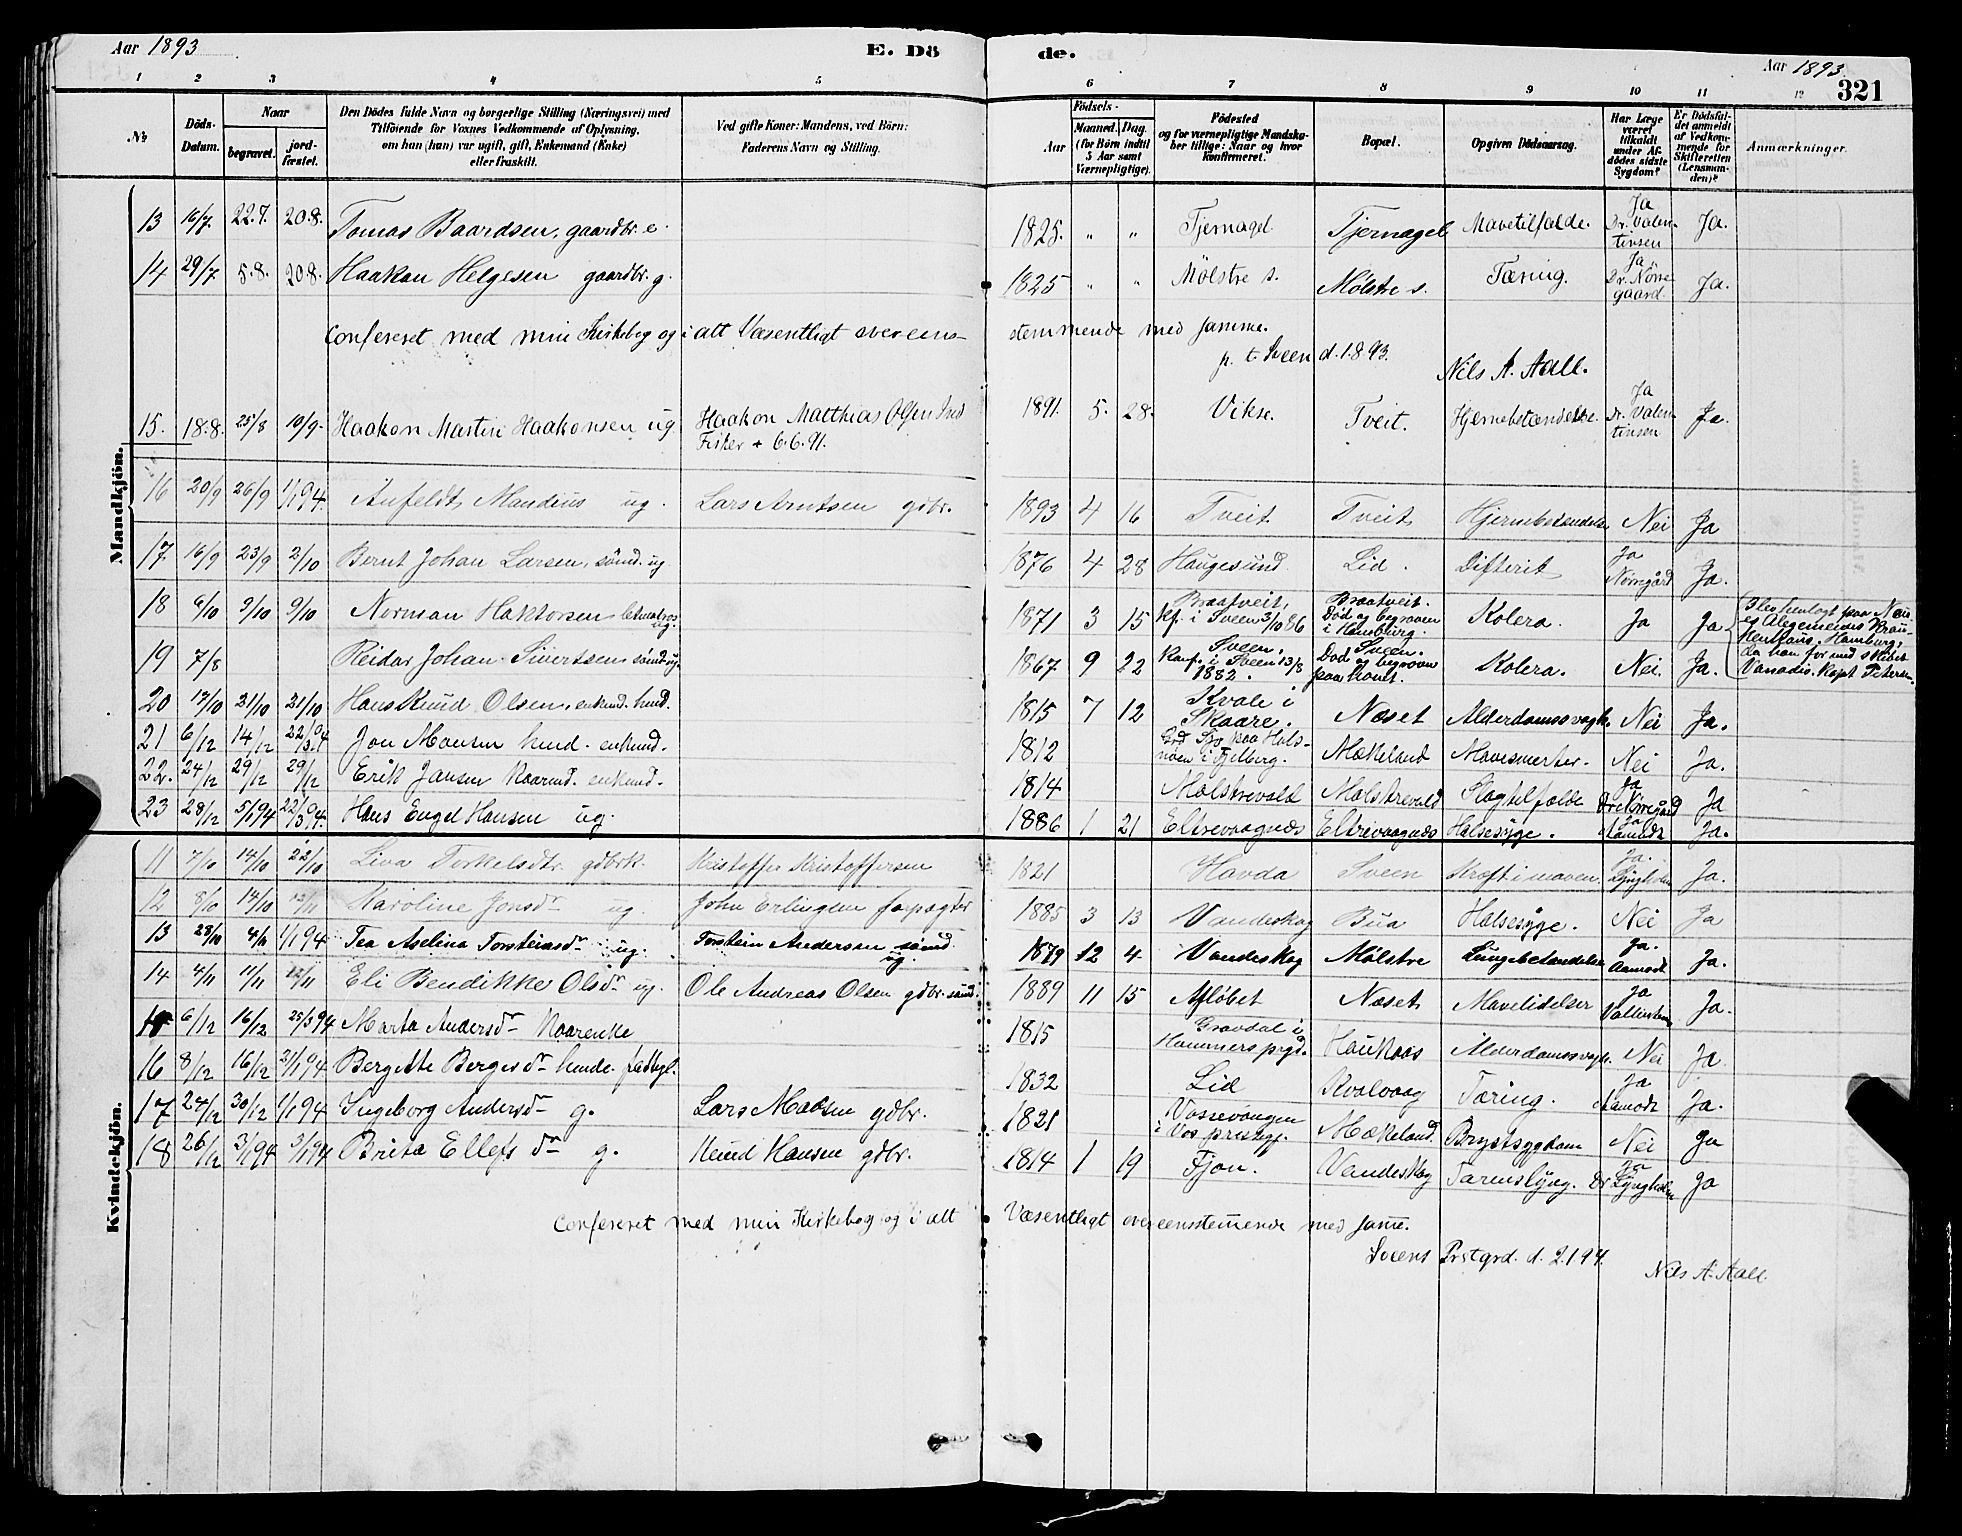 Aar 1893 E. Dö de. Aar 1893. 321
1 2 3 4 5 6 7 8 9 10 11 12
No Döds-Datum. Naar begravet. jordfæstet. Den Dödes fulde Navn og borgerlige Stilling (Næringsvei) med Tilföiende for Voxnes Vedkommende af Oplysning, om han (hun) var ugift, gift, Enkemand (Enke) eller fraskilt. Ved gifte Koner: Mandens, ved Börn: Faderens Navn og Stilling. Födsels- Aar Maaned. Dag. (for Börn indtil 5 Aar samt Værnepligtige). Födested og for værnepligtige Mandskaber tillige: Naar og hvor konfirmeret. Bopæl. Opgiven Dödsaarsag. Har Læge været tilkaldt under Afdödes sidste Sygdom? Er Dödsfaldet anmeldt af Vedkommende for Skifteretten (Lensmanden)? Anmærkninger.
Mandkjön.
13 16/7. 22.7. 20.8. Tomas Baardsen, gaardbr. e. 1825. " " Tjernagel Tjernagel Mavetilfælde. Ja Dr. Valentinsen Ja.
14 29/7 5.8. 20.8. Haakon Helgesen gaardbr. g. 1825 " " Mölstre s. Mølstre s. Tæring. Ja Dr. Nörregaard Ja.
Confereret med min Kirkebog og i alt Væsentligt overeensstemmende med samme.
p. t. Sveen d. 1.8.93.
Nils A. Aall.
15. 18.8. 25/8 10/9 Haakon Martin Haakonsen ug. Haakon Matthias Olsen Ind Fisker + 6.6.91. 1891. 5. 28. Vikse. Tveit. Hjernebetændelse. Ja Dr. Valentinsen Ja.
16 20/9 26/9 1/1 94. Anfeldt Mandius ug. Lars Arntsen gdbr. 1893 4 16 Tveit Tveit Hjernebetændelse Nei Ja
17 16/9 23/9 2/10 Bernt Johan Larsen, sömd. ug. 1876 4 28 Haugesund Lid. Difterit Ja Nörregård Ja.
18 6/10 9/10 9/10 Norman Haktorsen letmatros ug. 1871 3 15 Braatveit, Kf. i Sveen 3/10 86 Braatveit. Död og begraven i Hamburg. Kolera. Ja Ja Blev henlagt paa Neues Alegemeides Krankenhaus, Hamburg,
19 7/8 Reidar Johan Sivertsen sömd. ug. 1867 9 22 Sveen, Konf. i Sveen 13/8 1882. Sveen. Död og begraven paa havet. Kolera. Nei. Ja. da han for med skibet Vanadis. Kapt Petersen.
20 17/10 21/10 21/10 Hans Knud Olsen, enkmd. husmd. 1815 7 12 Kvale i Skaare. Næset Alderdomssvagh. Nei Ja.
21 6/12 14/12 22/3 94 Jon Monsen husmd. enkmd. 1812 Skaa Halsnöen i Fjelberg. Mækeland Mavesmerter. Nei Ja.
22. 24/12 29/12 29/12 Erik Jansen Kaarmd. enkmd. 1814 Mölstrevold Mölstrevold Slagtilfælde Ja Dr Nörregård Ja
23 28/12 5/1 94 22/3 94. Hans Engel Hansen ug. 1886 1 21 Eltrevaagnæs Eltrevaagnæs Halsesÿge. Ja Aamodt Ja.
Kvindekjön.
11 7/10 14/10 22/10 Liva Torkelsdtr. gdbrk. Kristoffer Kristoffersen 1821 Havda Sveen Kræft i maven. Ja. Lyngholm Ja.
12 8/10 14/10 Karoline Jonsdr ug. John Erlingsen forpagter 1885 3 13 Vandeskog Bua Halsesÿge. Nei Ja
13 28/10 4/11 1/1 94 Tea Aselina Torsteinsdr ug. Torstein Andersen sömd ug. 1879 12 4 Vandeskog Mölstre Lungebetændelse Ja. Aamodt Ja.
14 4/11 11/11 12/11 Eli Bendikke Olsdr ug. Ole Andreas Olsen gdbr. sömd. 1889 11 15 Aflöbet Næset Mavelidelser Ja Vallentinsen Ja.
15 6/12 16/12 25/3 94 Marta Andersdr Kaarenke 1815 Gravdal i Hammers prgd. Haukaas Alderdomssvagh. Nei Ja.
16 8/12 16/12 21/1 94 Bergitte Bergesdr husmde. fattigl. 1832 Lid Kvalvaag Tæring. Ja Aamodt Ja.
17 24/12 30/12 1/1 94 Ingeborg Andersdr g. Lars Madsen gdbr. 1821 Vossevangen i Vos prestegj. Mækeland. Brystsygdom Nei Ja
18 26/12 3/1 94 3/1 94 Brita Ellefsdr g. Knud Hansen gdbr. 1814 1 19 Fjon. Vandeskog Tarenslÿng. Ja Dr Lÿngholm Ja
Confereret med min Kirkebog og i alt Væsentligt overeensstemmende med samme.
Sveens Prstgrd. d. 2.1 94.
Nils A. Aall.